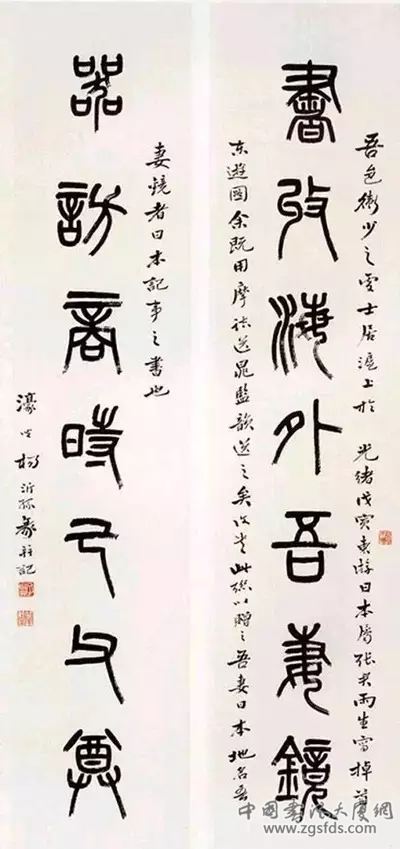 書攷海外吾妻鏡
吾邑衛少之雲士居滬上於 光緒戊寅東游日本屬張 雨生寫
東遊圖余既用摩詰送晁監韻送之矣 此聯以贈之吾妻日本地名吾
妻鏡者日本記事之書也
器訪商時己父尊
濠叟楊沂孫篆並記
中國書法大廈網
www.zgsfds.com